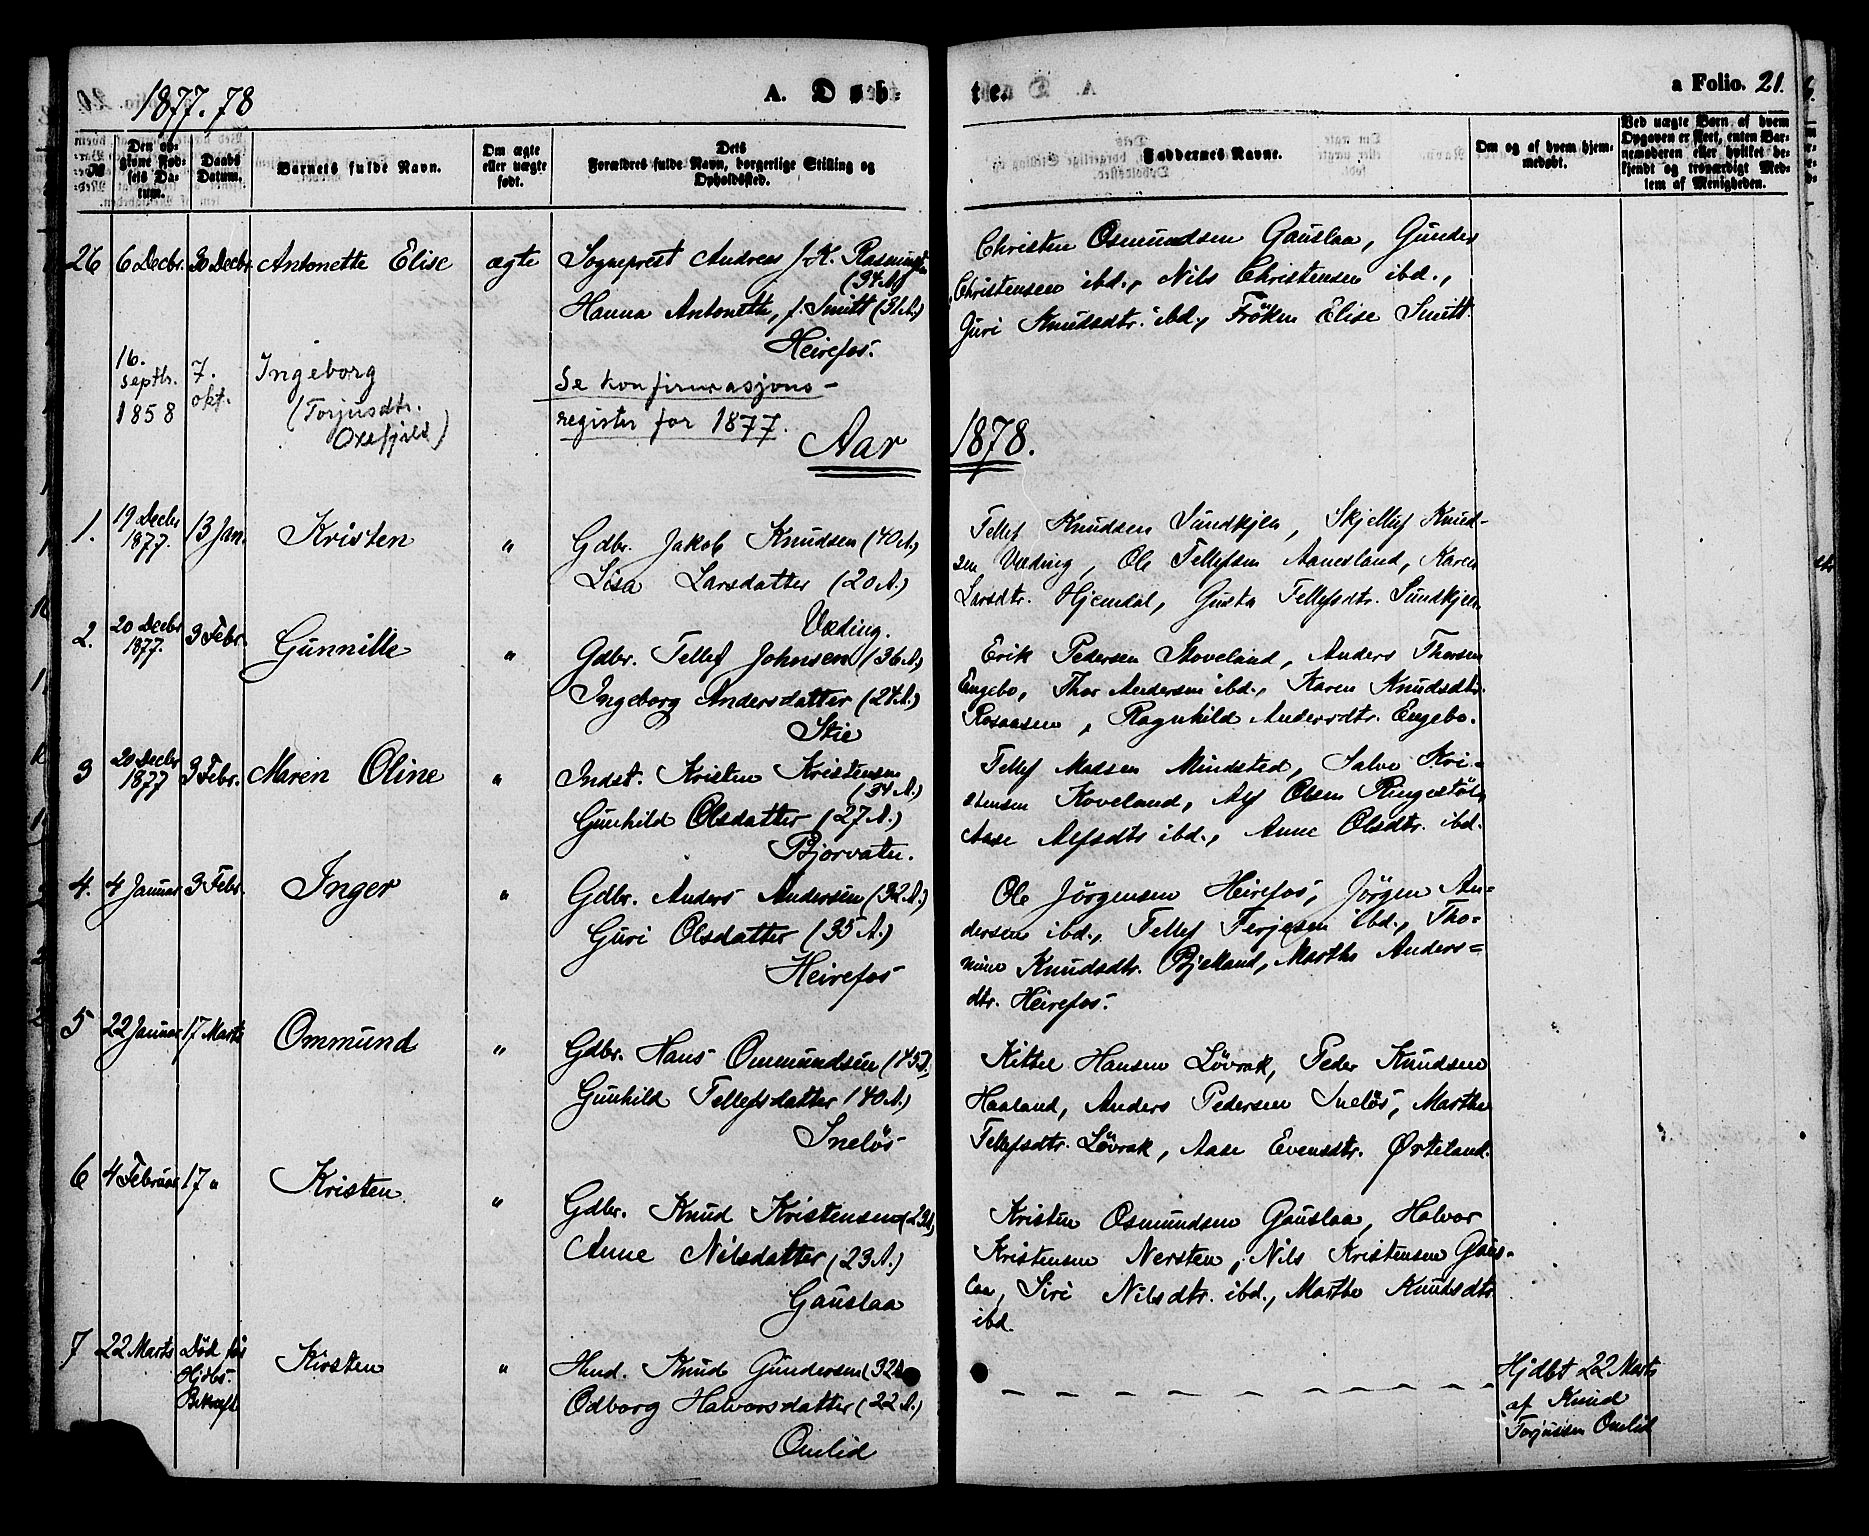 1877.78
A. Døb-
te.
a Folio. 21.
№
Den opgivne Fødsels Datum.
Daabs Datum.
Barnets fulde Navn.
Om ægte eller uægte født.
Dets Forældres fulde Navn, borgerlige Stilling og Opholdssted.
Faddernes Navne.
Om og af hvem hjemmedøbt.
Ved uægte Børn af hvem Opgaven er skeet, enten Barnemoderen eller hvilket bekjendt og troværdigt Medlem af Menigheden.
26 6 Decbr. 30 Decbr. Antonette Elise ægte Sogneprest Andreas J. K. Rasmussen
(34 A)
Hanna Antonette, f. Smitt (31 A.)
Heirefos.
Christen Osmundsen Gauslaa, Gunder
Christensen ibd., Nils Christensen ibd.,
Guri Knudsdtr. ibd., Fröken Elise Smitt.
16. septbr. 1858
7. okt.
Ingeborg
(Torjusdtr.
Oxefjeld)
Se konfirmasjons-
register for 1877.
Aar 1878.
1. 19 Decbr 1877. 13 Jan. Kristen " Gdbr. Jakob Knudsen (40 A.)
Lisa Larsdatter (20 A.)
Væding.
Tellef Knudsen Sundkjen, Skjellef Knud-
sen Væding, Ole Tellefsen Aanesland, Karen
Larsdtr. Hjemdal, Gusta Tellefsdtr. Sundkjen.
2. 20 Decbr 1877. 3 Febr. Gunnille " Gdbr. Tellef Johnsen (36 A.)
Ingeborg Andersdatter (24 A.)
Skie
Erik Pedersen Stoveland, Anders Thorsen
Engebo, Thor Andersen ibd., Karen Knudsdtr.
Rosaasen, Ragnhild Andersdtr. Engebo.
3 20 Decbr 1877 3 Febr. Maren Oline " Indst. Kristen Kristensen
(34 A.)
Gunhild Olsdatter (27 A.)
Bjorvatn.
Tellef Madsen Mindsted, Salve Kri-
stensen Koveland, Alf Olsen Ringestöl,
Aase Alfsdtr ibd., Anne Olsdtr. ibd.
4. 4 Januar 3 Febr. Inger " Gdbr. Anders Andersen (32 A.)
Guri Olsdatter (35 A.)
Heirefos
Ole Jörgensen Heirefos, Jörgen An-
dersen ibd., Tellef Terjesen ibd., Tho-
mine Knudsdtr. Bjelland, Marthe Anders-
dtr. Heirefos.
5 22 Januar 17 Marts Ommund " Gdbr. Hans Ommundsen (45 A.)
Gunhild Tellefsdatter (40 A.)
Inelös
Kittel Hansen Lövrak, Peder Knudsen
Haaland, Anders Pedersen Inelös, Marthe
Tellefsdtr. Lövrak, Aase Evensdtr. Ørteland.
6 4 Februar 17 " Kristen " Gdbr. Knud Kristensen (23 A.)
Anne Nilsdatter (23 A.)
Gauslaa
Kristen Osmundsen Gauslaa, Halvor
Kristensen Nersten, Nils Kristensen Gaus-
laa, Siri Nilsdtr. ibd., Marthe Knudsdtr.
ibd.
7 22 Marts Død før Hjdbs. Bekræft Kirsten " Hmd. Knud Gundersen (32 A.)
Odborg Halvorsdatter (22 A.)
Omlid
Hjdbt 22 Marts
af Knud
Torjussen Omlid